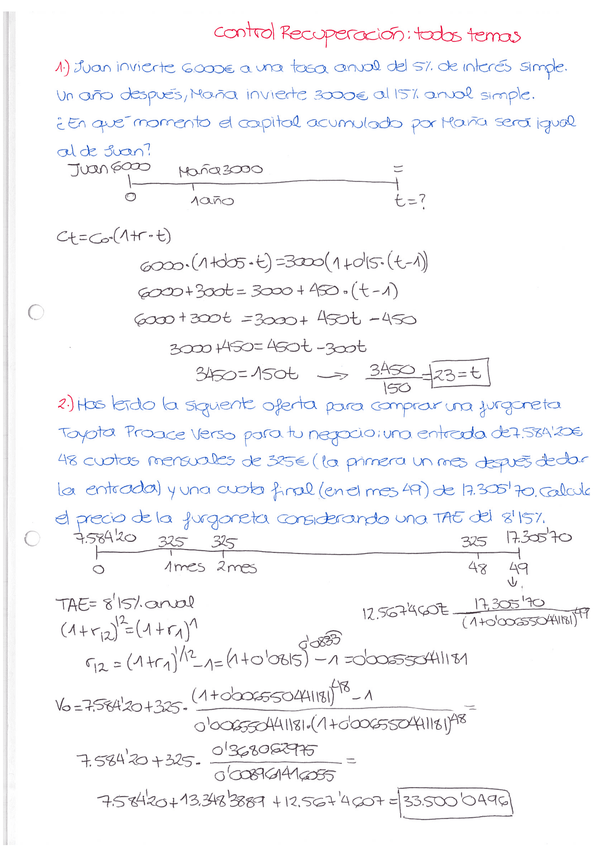 Control Recuperación: todos temas
1.) Juan invierte 6000€ a una tasa anual del 5% de interés simple.
Un año después, María invierte 3000€ al 15% anual simple.
¿En qué momento el capital acumulado por María será igual
al de Juan?
Juan 6000 María 3000 =
0 1 año t=?
Ct=C0·(1+r·t)
6000·(1+0'05·t)=3000(1+0'15·(t-1))
6000+300t=3000+450·(t-1)
6000+300t=3000+450t-450
3000+450=450t-300t
3450=150t → 3.450/150 = 23=t
2.) Has leído la siguiente oferta para comprar una furgoneta
Toyota Proace Verso para tu negocio: una entrada de 7.584'20€
48 cuotas mensuales de 325€ (la primera un mes después de dar
la entrada) y una cuota final (en el mes 49) de 17.305'70. Calcula
el precio de la furgoneta considerando una TAE del 8'15%.
7.584'20 325 325 325 17.305'70
0 1mes 2mes 48 49
TAE=8'15% anual
12.567'4607 17.305'70/(1+0'006550441181)^49
(1+r12)^12=(1+r1)^1
r12=(1+r1)^1/12-1=(1+0'0815)^0'0833-1=0'006550441181
V0=7.584'20+325·(1+0'006550441181)^48-1/0'006550441181·(1+0'006550441181)^48=
7.584'20+325·0'368062975/0'008961416055=
7.584'20+13.348'3889+12.567'4607=33.500'0496